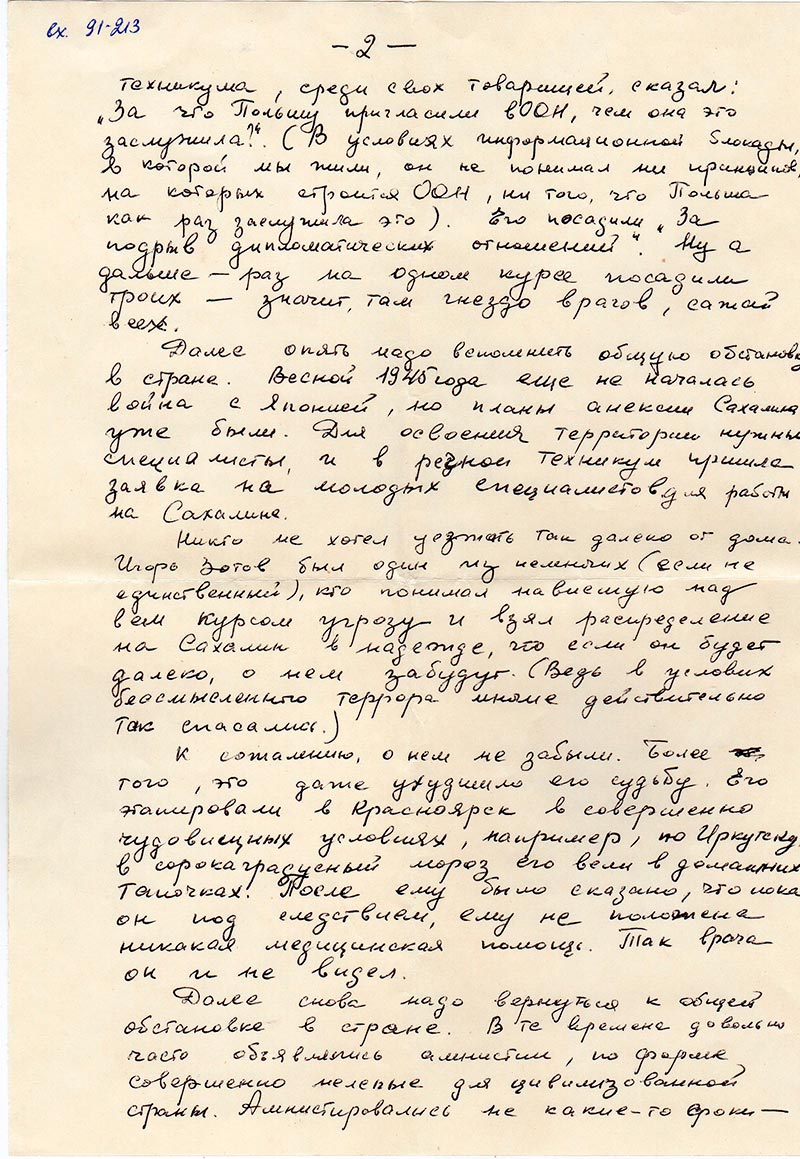 вх. 91-213
— 2 —
техникума, среди своих товарищей, сказал:
„За что Польшу пригласили в ООН, чем она это
заслужила?“. (В условиях информационной блокады,
в которой мы жили, он не понимал ни принципов,
на которых строится ООН, ни того, что Польша
как раз заслужила это). Его посадили „За
подрыв дипломатических отношений“. Ну а
дальше — раз на одном курсе посадили
троих — значит, там гнездо врагов, сажай
всех.
Далее опять надо вспомнить общую обстановку
в стране. Весной 1945 года еще не началась
война с Японией, но планы анексии Сахалина
уже были. Для освоения территории нужны
специалисты, и в речной техникум пришла
заявка на молодых специалистов для работы
на Сахалине.
Никто не хотел уезжать так далеко от дома.
Игорь Зотов был один из немногих (если не
единственный), кто понимал нависшую над
всем курсом угрозу и взял распределение
на Сахалин в надежде, что если он будет
далеко, о нем забудут. (Ведь в условиях
бессмысленного террора многие действительно
так спасались.)
К сожалению, о нем не забыли. Более
того, это даже ухудшило его судьбу. Его
этапировали в Красноярск в совершенно
чудовищных условиях, например, по Иркутску,
в сорокаградусный мороз его вели в домашних
тапочках. После ему было сказано, что пока
он под следствием, ему не положена
никакая медицинская помощь. Так врача
он и не видел.
Далее снова надо вернуться к общей
обстановке в стране. В те времена довольно
часто объявлялись амнистии, по форме
совершенно нелепые для цивилизованной
страны. Амнистировались не какие-то сроки —